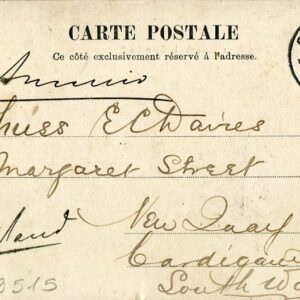 CARTE POSTALE
Ce côté exclusivement réservé à l'adresse.
Miss E C Davies
Margaret Street
New Quay
Cardigan
South Wa
9515